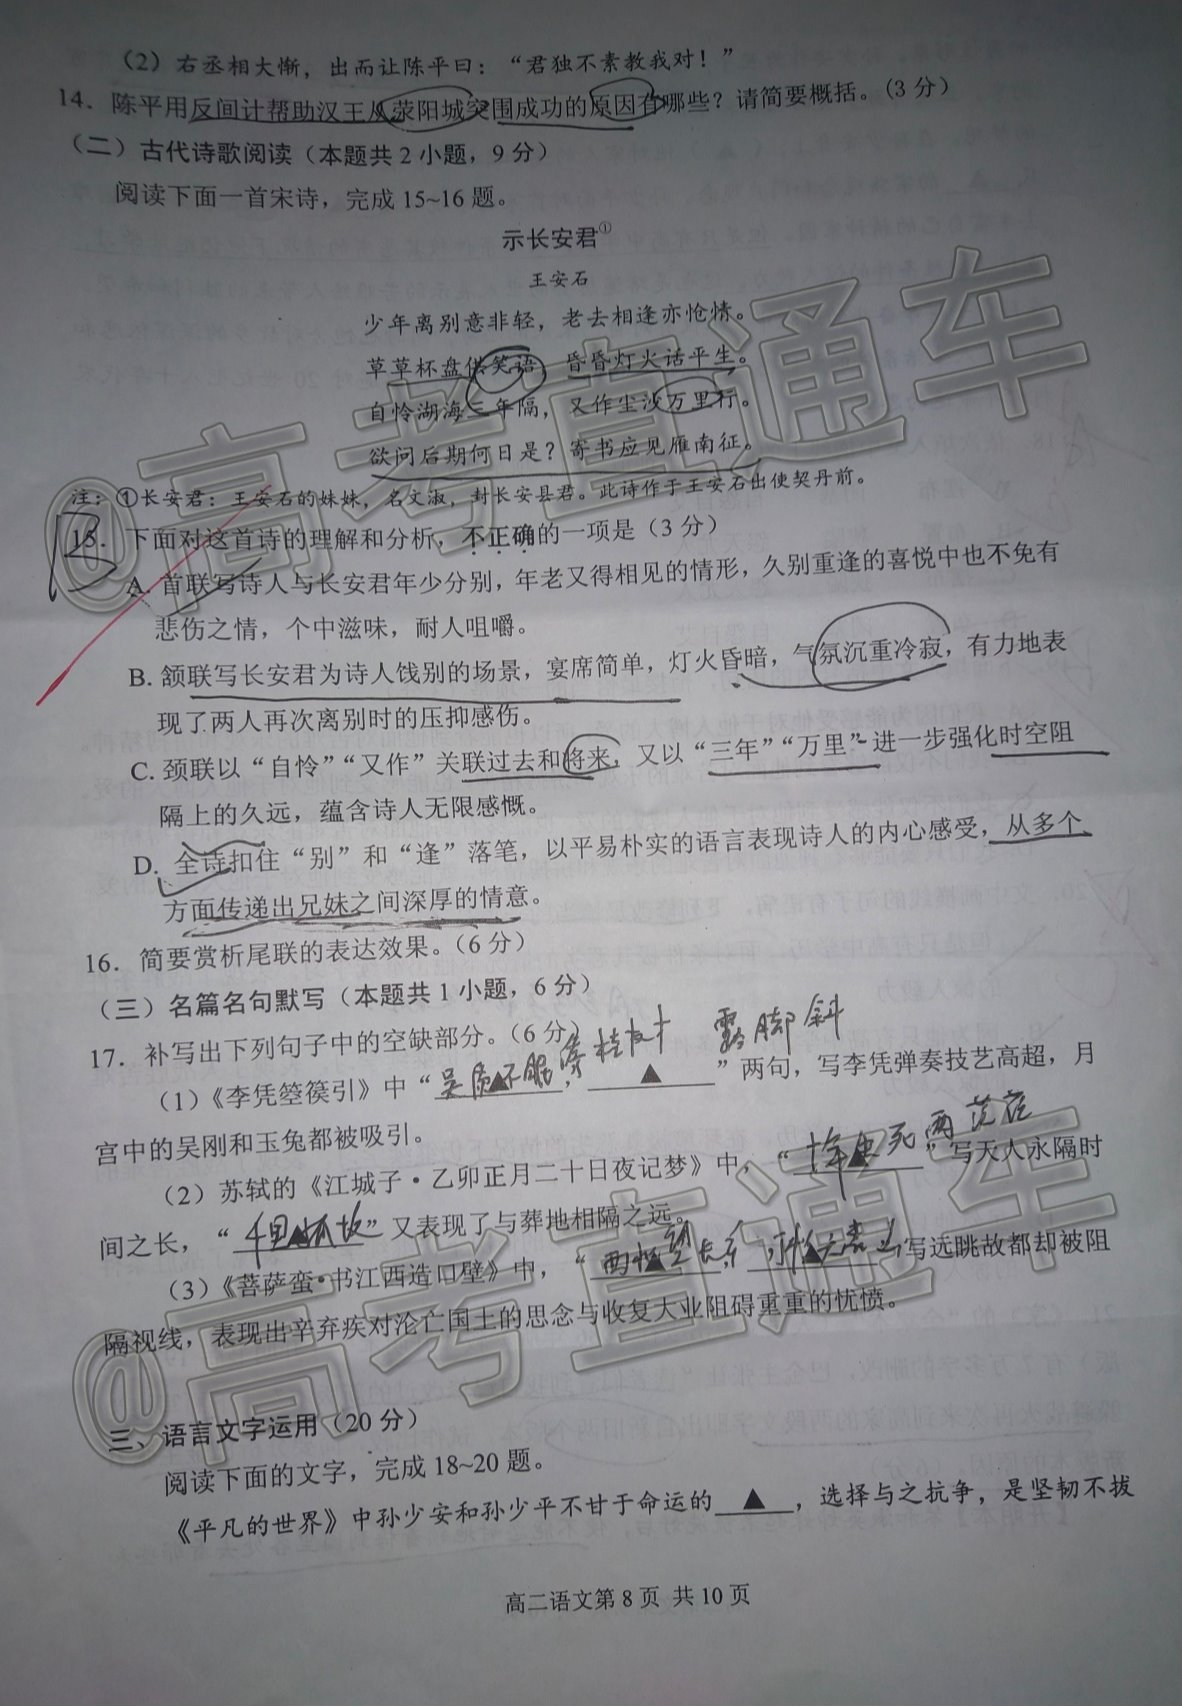 （2）右丞相大惭，出而让陈平曰：“君独不素教我对！”
14．陈平用反间计帮助汉王从荥阳城突围成功的原因有哪些？请简要概括。（3 分）
（二）古代诗歌阅读（本题共 2 小题，9 分）
阅读下面一首宋诗，完成 15~16 题。
示长安君①
王安石
少年离别意非轻，老去相逢亦怆情。
草草杯盘供笑语，昏昏灯火话平生。
自怜湖海三年隔，又作尘沙万里行。
欲问后期何日是？寄书应见雁南征。
注：①长安君：王安石的妹妹，名文淑，封长安县君。此诗作于王安石出使契丹前。
15．下面对这首诗的理解和分析，不正确的一项是（3 分）
A. 首联写诗人与长安君年少分别，年老又得相见的情形，久别重逢的喜悦中也不免有
悲伤之情，个中滋味，耐人咀嚼。
B. 颔联写长安君为诗人饯别的场景，宴席简单，灯火昏暗，气氛沉重冷寂，有力地表
现了两人再次离别时的压抑感伤。
C. 颈联以“自怜”“又作”关联过去和将来，又以“三年”“万里”进一步强化时空阻
隔上的久远，蕴含诗人无限感慨。
D. 全诗扣住“别”和“逢”落笔，以平易朴实的语言表现诗人的内心感受，从多个
方面传递出兄妹之间深厚的情意。
16．简要赏析尾联的表达效果。（6 分）
（三）名篇名句默写（本题共 1 小题，6 分）
17．补写出下列句子中的空缺部分。（6 分）
（1）《李凭箜篌引》中“吴质不眠倚桂树，▲”两句，写李凭弹奏技艺高超，月
露脚斜
宫中的吴刚和玉兔都被吸引。
（2）苏轼的《江城子·乙卯正月二十日夜记梦》中，“十年生死两茫茫”写天人永隔时
间之长，“千里孤坟”又表现了与葬地相隔之远。
（3）《菩萨蛮·书江西造口壁》中，“▲，▲”写远眺故都却被阻
隔视线，表现出辛弃疾对沦亡国土的思念与收复大业阻碍重重的忧愤。
三、语言文字运用（20 分）
阅读下面的文字，完成 18~20 题。
《平凡的世界》中孙少安和孙少平不甘于命运的▲，选择与之抗争，是坚韧不拔
高二语文第 8 页 共 10 页
@高考直通车
@高考直通车